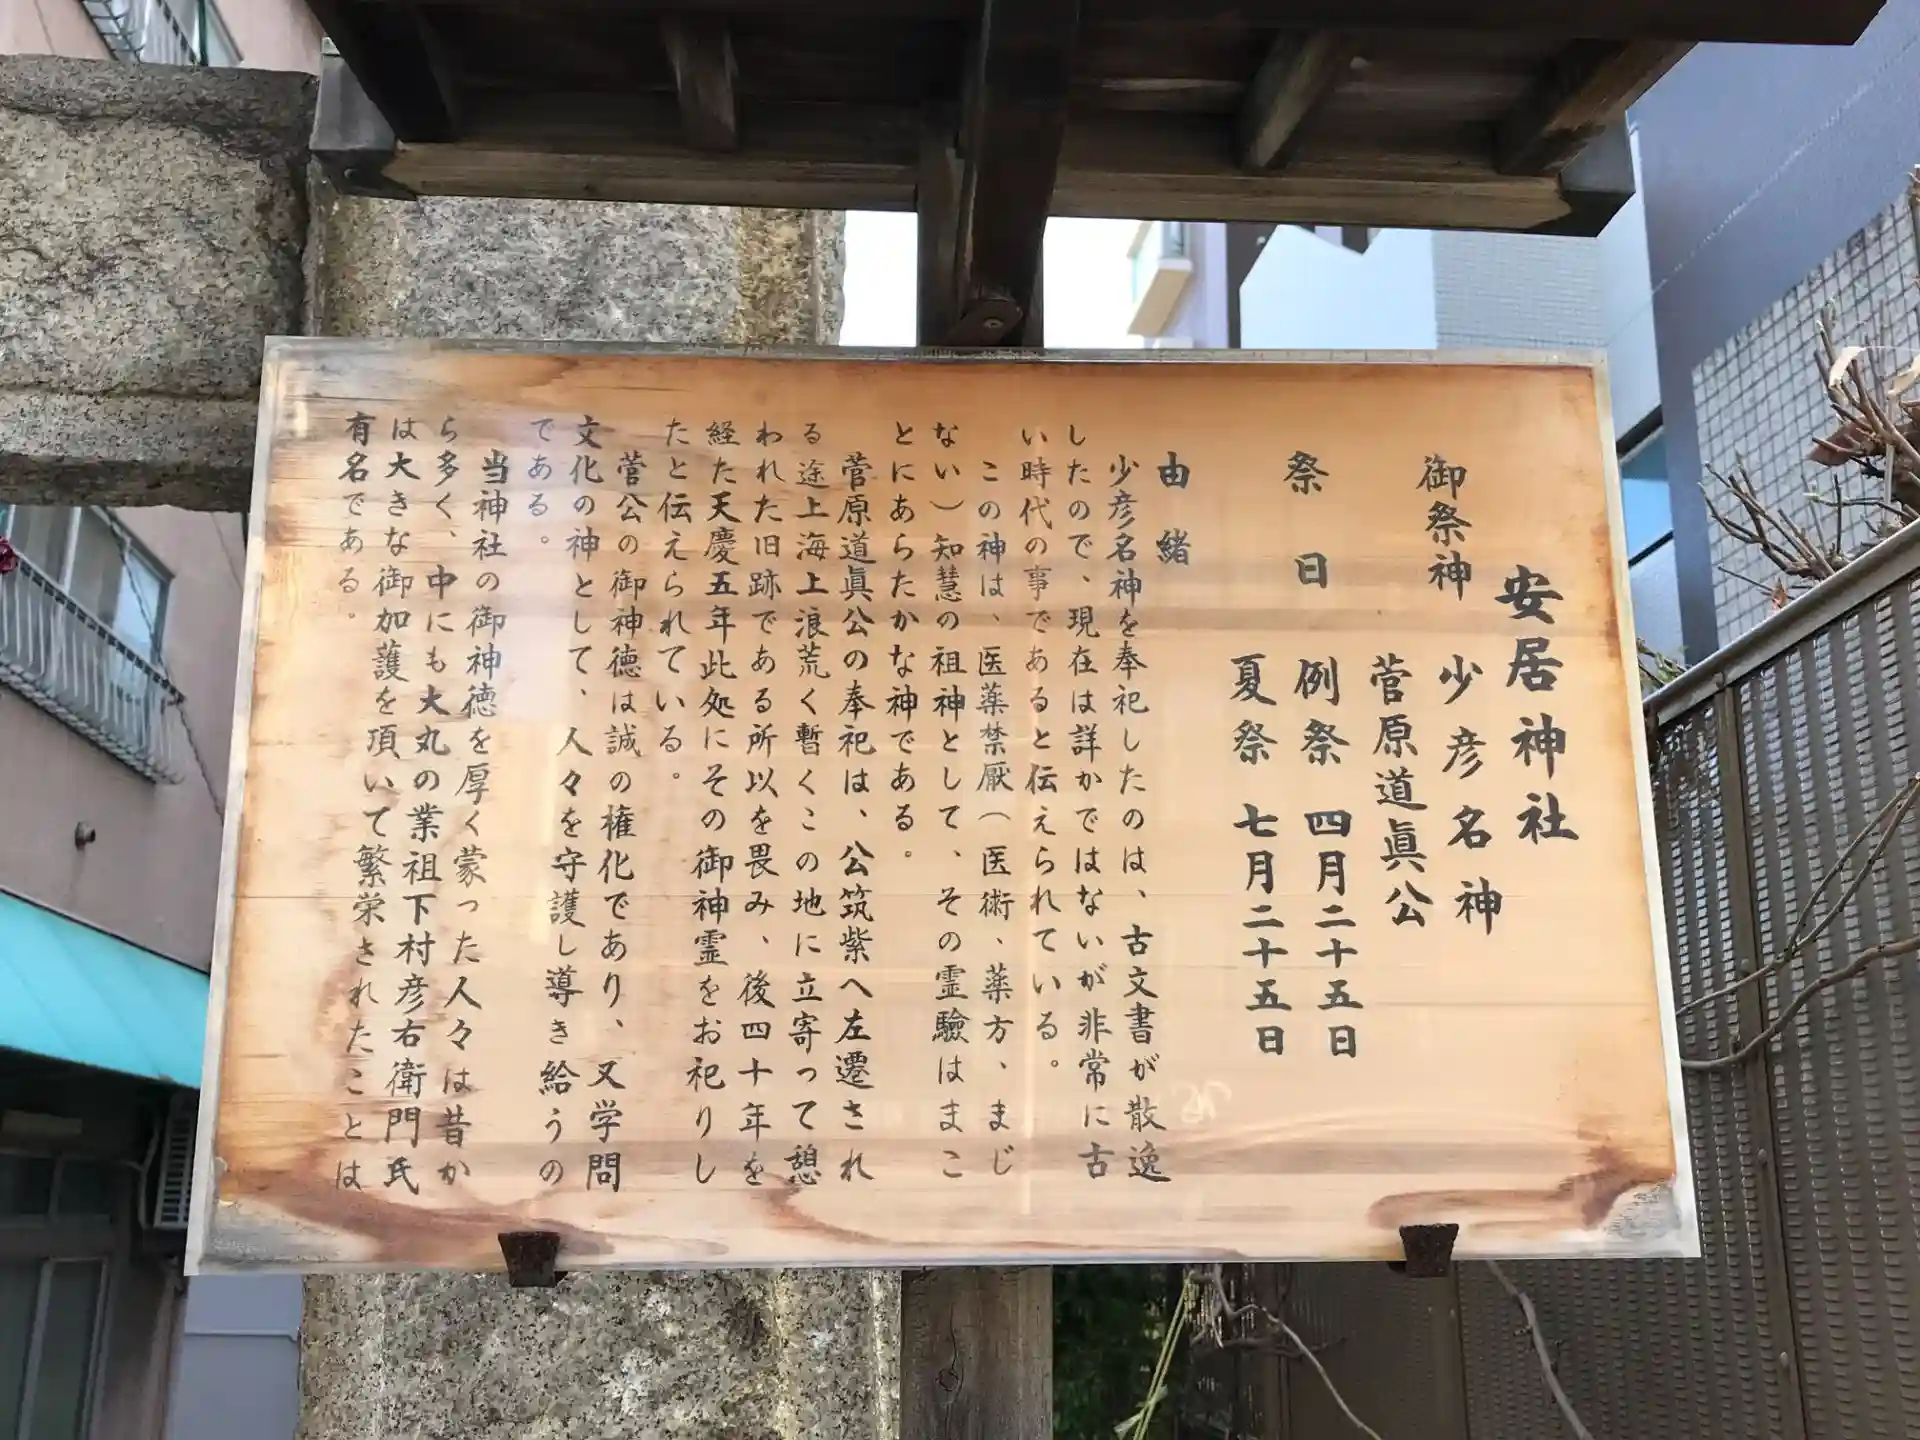 安居神社
御祭神 少彦名神
菅原道眞公
祭日 例祭 四月二十五日
夏祭 七月二十五日
由緒
少彦名神を奉祀したのは、古文書が散逸
したので、現在は詳かではないが非常に古
い時代の事であると伝えられている。
この神は、医薬禁厭(医術、薬方、まじ
ない)知慧の祖神として、その霊験はまこ
とにあらたかな神である。
菅原道眞公の奉祀は、公筑紫へ左遷され
る途上海上浪荒く暫くこの地に立寄って憩
われた旧跡である所以を畏み、後四十年を
経た天慶五年此処にその御神霊をお祀りし
たと伝えられている。
菅公の御神徳は誠の権化であり、又学問
文化の神として、人々を守護し導き給うの
である。
当神社の御神徳を厚く蒙った人々は昔か
ら多く、中にも大丸の業祖下村彦右衛門氏
は大きな御加護を頂いて繁栄されたことは
有名である。